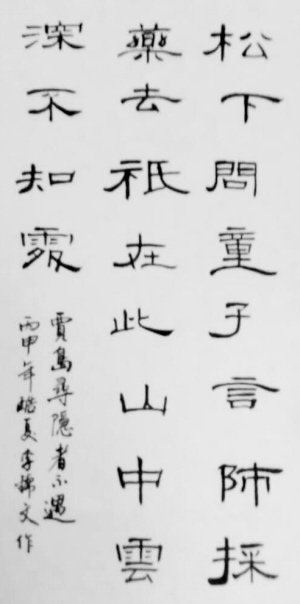 松下問童子言師採
藥去祇在此山中雲
深不知處
賈島尋隱者不遇
丙申年夏李文作